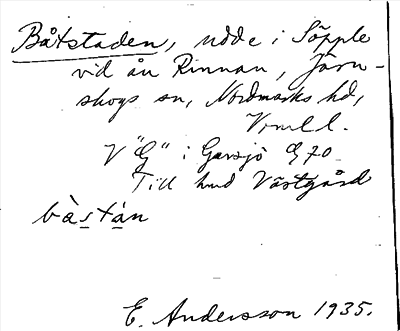 Båtstaden, udde i Söpple
vid ån Rinnan, Järn-
skogs sn, Nordmarks hd,
Vrml l.
V "G" i Garsjö G 70
Till hmd Västgård
bàstán
E. Andersson 1935.